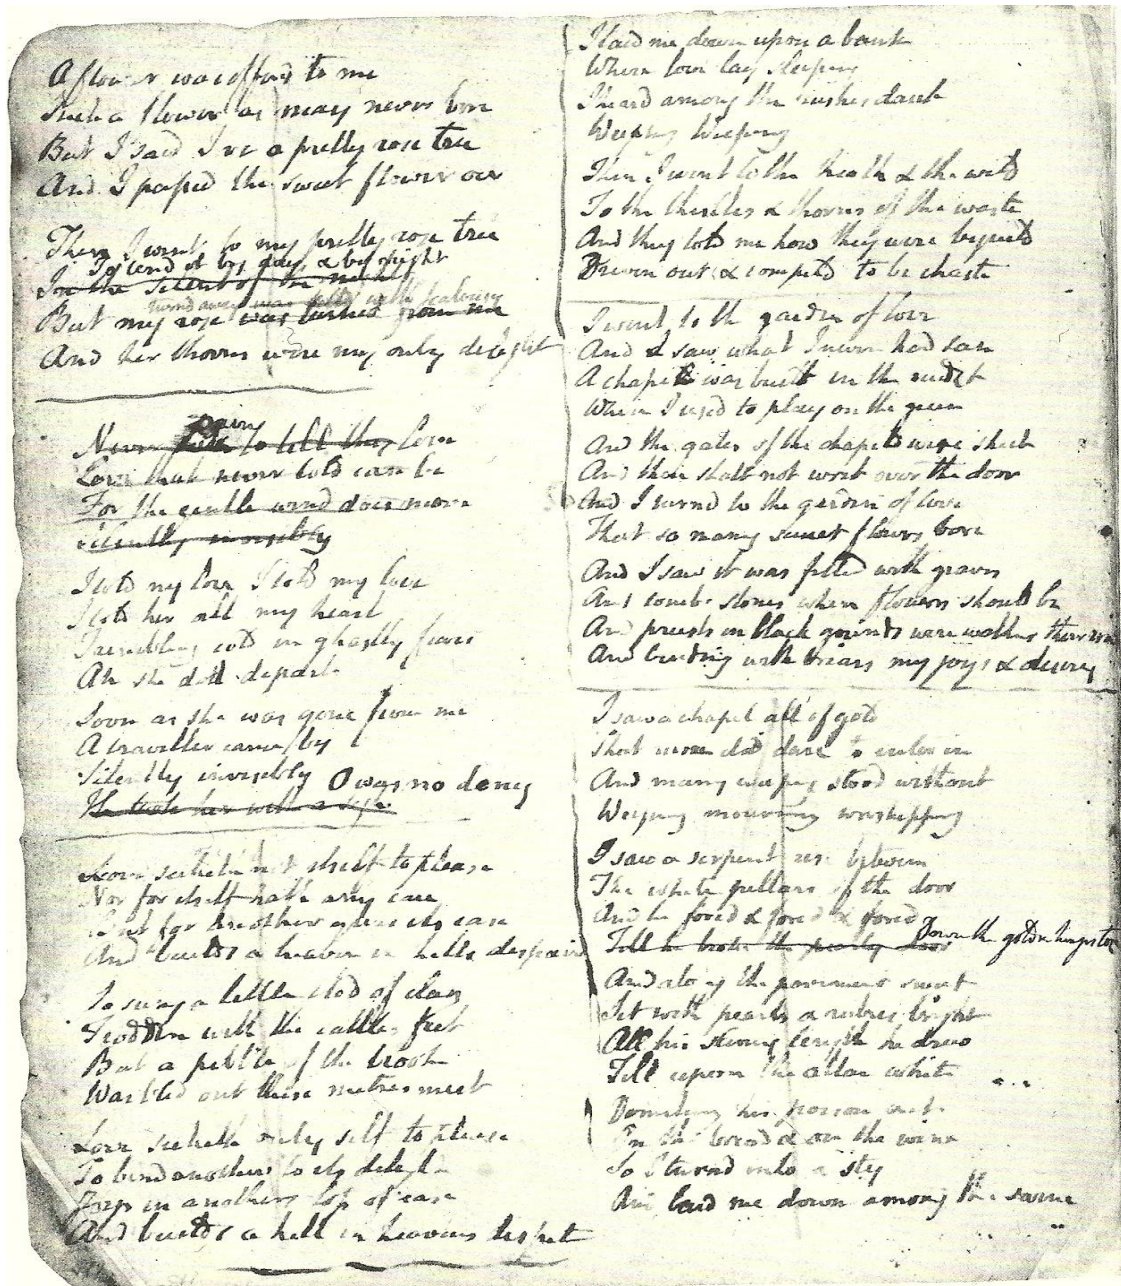 A flower was offerd to me
Such a flower as may never bore
But I said I've a pretty rose tree
And I passed the sweet flower oer
Then I went to my pretty rose tree
To tend it by day & by night
In the silent of the night
turnd away was filld with jealousy
But my rose was turned from me
And her thorns were my only delight
pain
Never seek to tell thy love
Love that never told can be
For the gentle wind does move
Silently invisibly
I told my love I told my love
I told her all my heart
Trembling cold in ghastly fears
Ah she doth depart
Soon as she was gone from me
A traveller came by
Silently invisibly O was no deny
He took her with a sigh
Love seeketh not itself to please
Nor for itself hath any care
But for another gives its ease
And builds a heaven in hells despair
So sung a little clod of clay
Trodden with the cattles feet
But a pebble of the brook
Warbled out these metres meet
Love seeketh only self to please
To bind another to its delight
Joys in anothers loss of ease
And builds a hell in heavens despite
I laid me down upon a bank
Where love lay sleeping
I heard among the rushes dank
Weeping Weeping
Then I went to the heath & the wild
To the thistles & thorns of the waste
And they told me how they were beguild
Driven out & compeld to be chaste
I went to the garden of love
And I saw what I never had seen
A chapel was built in the midst
Where I used to play on the green
And the gates of the chapel were shut
And thou shalt not writ over the door
So I turnd to the garden of love
That so many sweet flowers bore
And I saw it was filled with graves
And tomb-stones where flowers should be
And priests in black gounds were walking their rounds
And binding with briars my joys & desires
I saw a chapel all of gold
That none did dare to enter in
And many weeping stood without
Weeping mourning worshipping
I saw a serpent rise between
The white pillars of the door
And he forcd & forcd & forcd
Down the golden hinges tore
Till he broke the pearly door
And along the pavement sweet
Set with pearls & rubies bright
All his slimy length he drew
Till upon the altar white
Vomiting his poison out
On the bread & on the wine
So I turnd into a sty
And laid me down among the swine